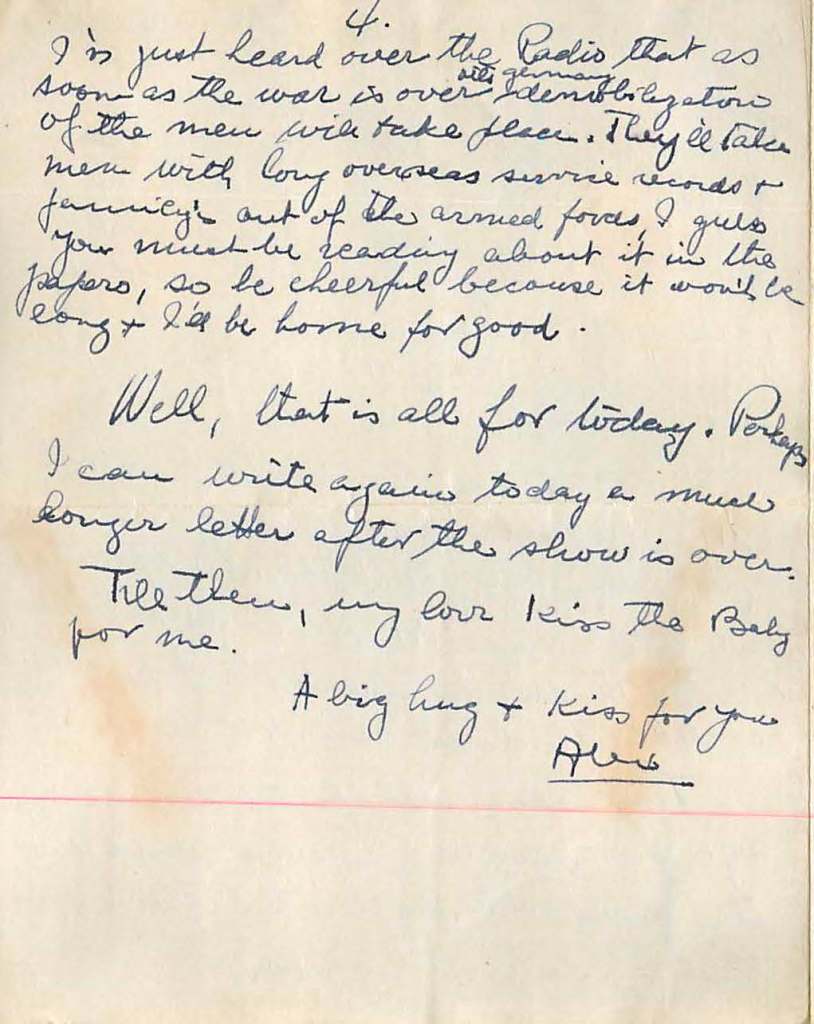 4.
I've just heard over the Radio that as
with germany
soon as the war is over demobilization
of the men will take place. They'll take
men with long overseas service records +
family's out of the armed forces, I guess
you must be reading about it in the
papers, so be cheerful because it won't be
long + I'll be home for good.
Well, that is all for today. Perhaps
I can write again today a much
longer letter after the show is over.
Till then, my love Kiss the Baby
for me.
A big hug + Kiss for you